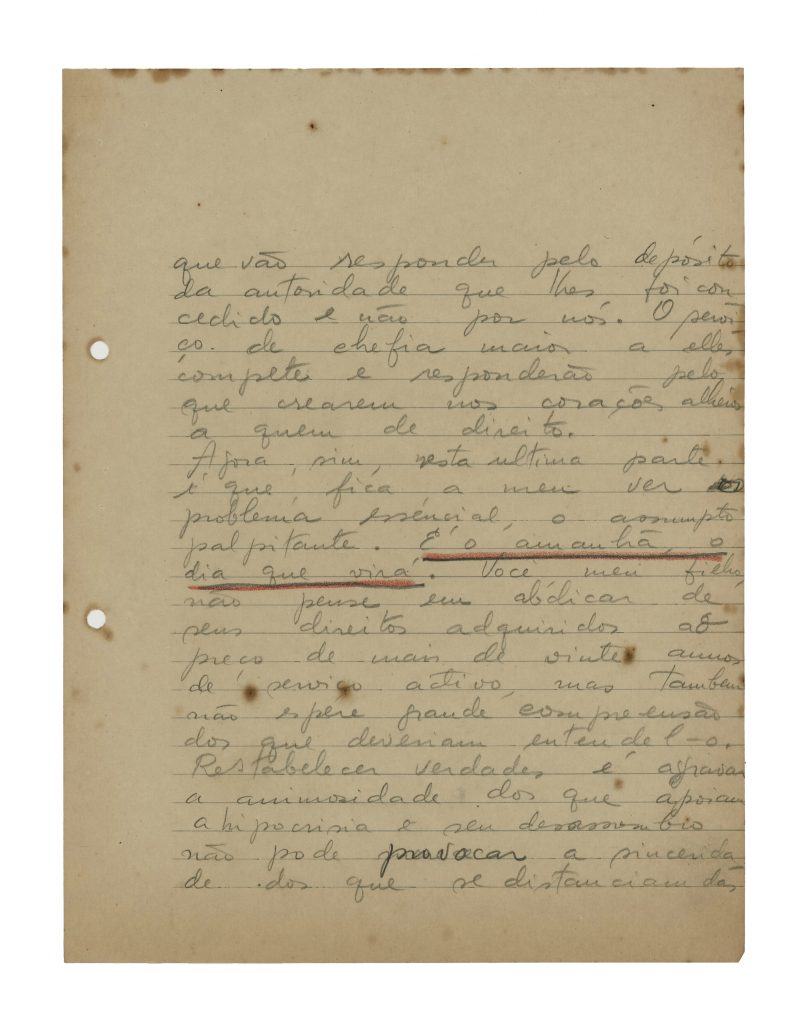 que vão responder pelo depósito
da autoridade que lhes foi con
cedido e não por nós. O servi
ço. de chefia maior a elles
compete e responderão pelo
que crearem nos corações alheios
a quem de direito.
Agora, sim, nesta ultima parte
é que fica a meu ver
problema essencial, o assumpto
palpitante. É o amanhã, o
dia que virá. Você meu filho,
não pense em abdicar de
seus direitos adquiridos ao
preço de mais de vinte annos
de serviço activo, mas tambem
não espere grande compreensão
dos que deveriam entendel-o.
Restabelecer verdades é agravar
a animosidade dos que apoiam
a hipocrisia e seu desassombro
não pode provocar a sincerida
de dos que se distanciam das